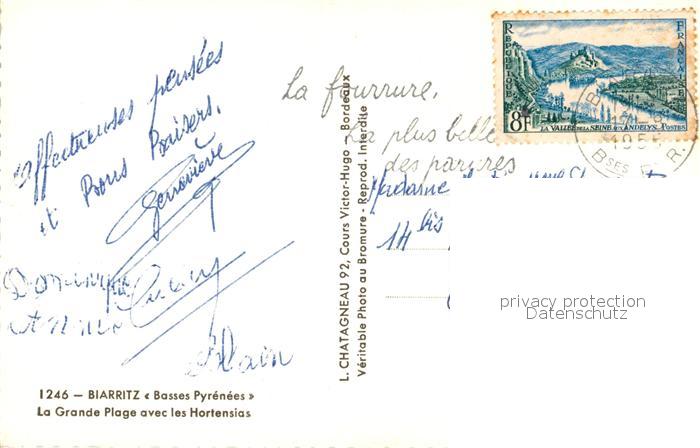 affectueuses pensées
et Bons Baisers.
Geneviève
Alain
1246 — BIARRITZ « Basses Pyrénées »
La Grande Plage avec les Hortensias
L. CHATAGNEAU 92, Cours Victor-Hugo — Bordeaux
Véritable Photo au Bromure - Reprod. Interdite
La fourrure,
La plus belle
des parures
Madame
14 bis
REPUBLIQUE FRANÇAISE
8F
LA VALLEE DE LA SEINE AUX ANDELYS
POSTES
1955
Bses P
R.
privacy protection
Datenschutz